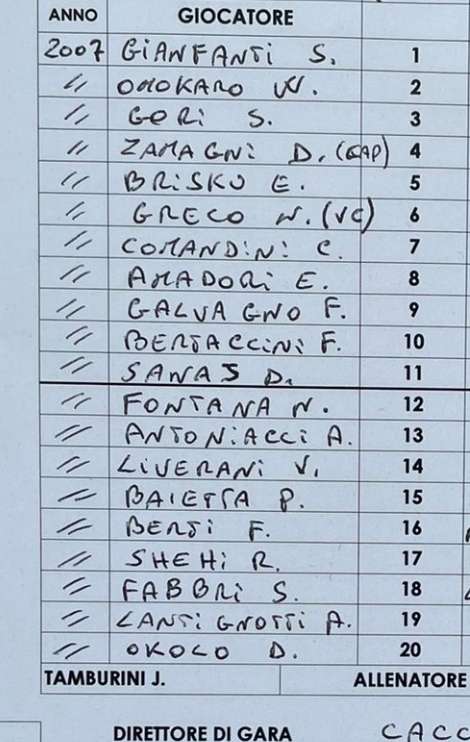 ANNO GIOCATORE
2007 GIANFANTI S. 1
〃 OMOKARO W. 2
〃 GORI S. 3
〃 ZAMAGNI D. (CAP) 4
〃 BRISKU E. 5
〃 GRECO N. (VC) 6
〃 COMANDINI C. 7
〃 AMADORI E. 8
〃 GALVAGNO F. 9
〃 BERTACCINI F. 10
〃 SANAS D. 11
〃 FONTANA N. 12
〃 ANTONIACCI A. 13
〃 LIVERANI V. 14
〃 BAIETTA P. 15
〃 BERTI F. 16
〃 SHEHI R. 17
〃 FABBRI S. 18
〃 LANTIGNOTTI A. 19
〃 OKOLO D. 20
TAMBURINI J. ALLENATORE
DIRETTORE DI GARA CACC